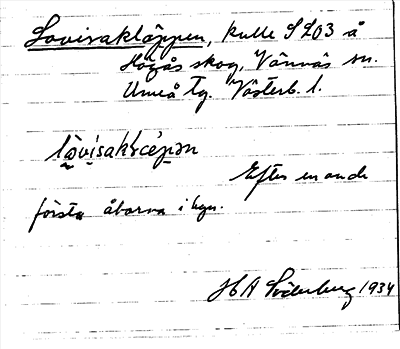 Lovisakläppen, kulle S 203 å
Högås skog, Vännäs sn.
Umeå tg. Västerb. l.
Efter en av de
första åborna i byn.
H A Söderberg 1934